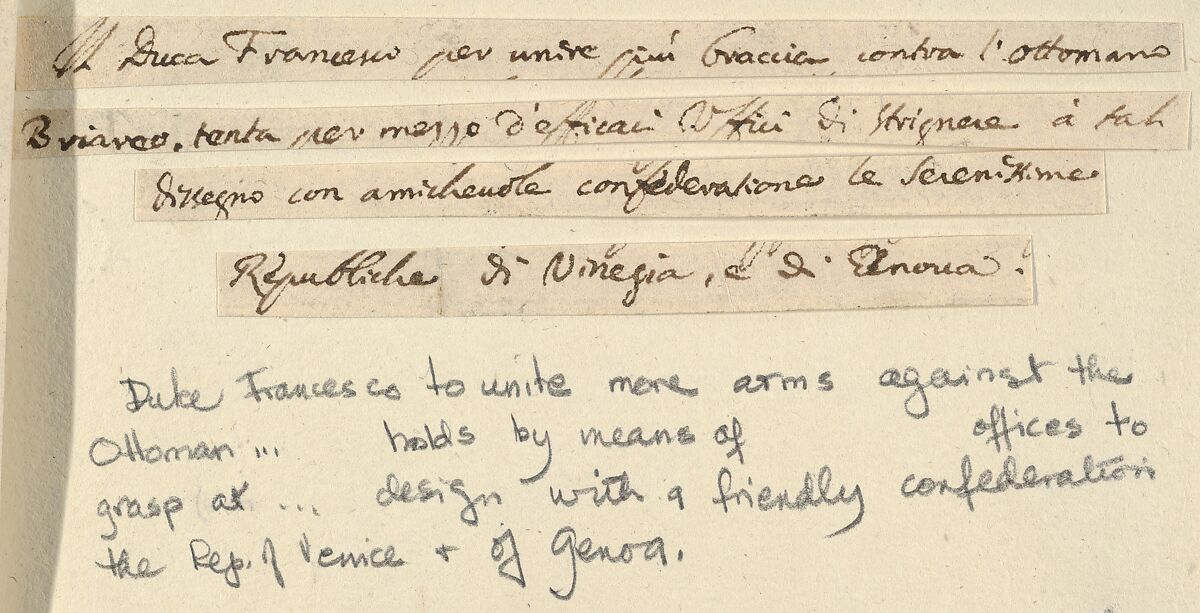 Il Duca Francesco per unire più braccia contra l'ottomano
Briareo, tenta per mezzo d'efficaci Uffici di strignere à tal
dissegno con amichevole confederatione le Serenissime
Republiche di Vinegia, e di Genova.
Duke Francesco to unite more arms against the
Ottoman ... holds by means of offices to
grasp at ... design with a friendly confederation
the Rep. of Venice + of Genoa.